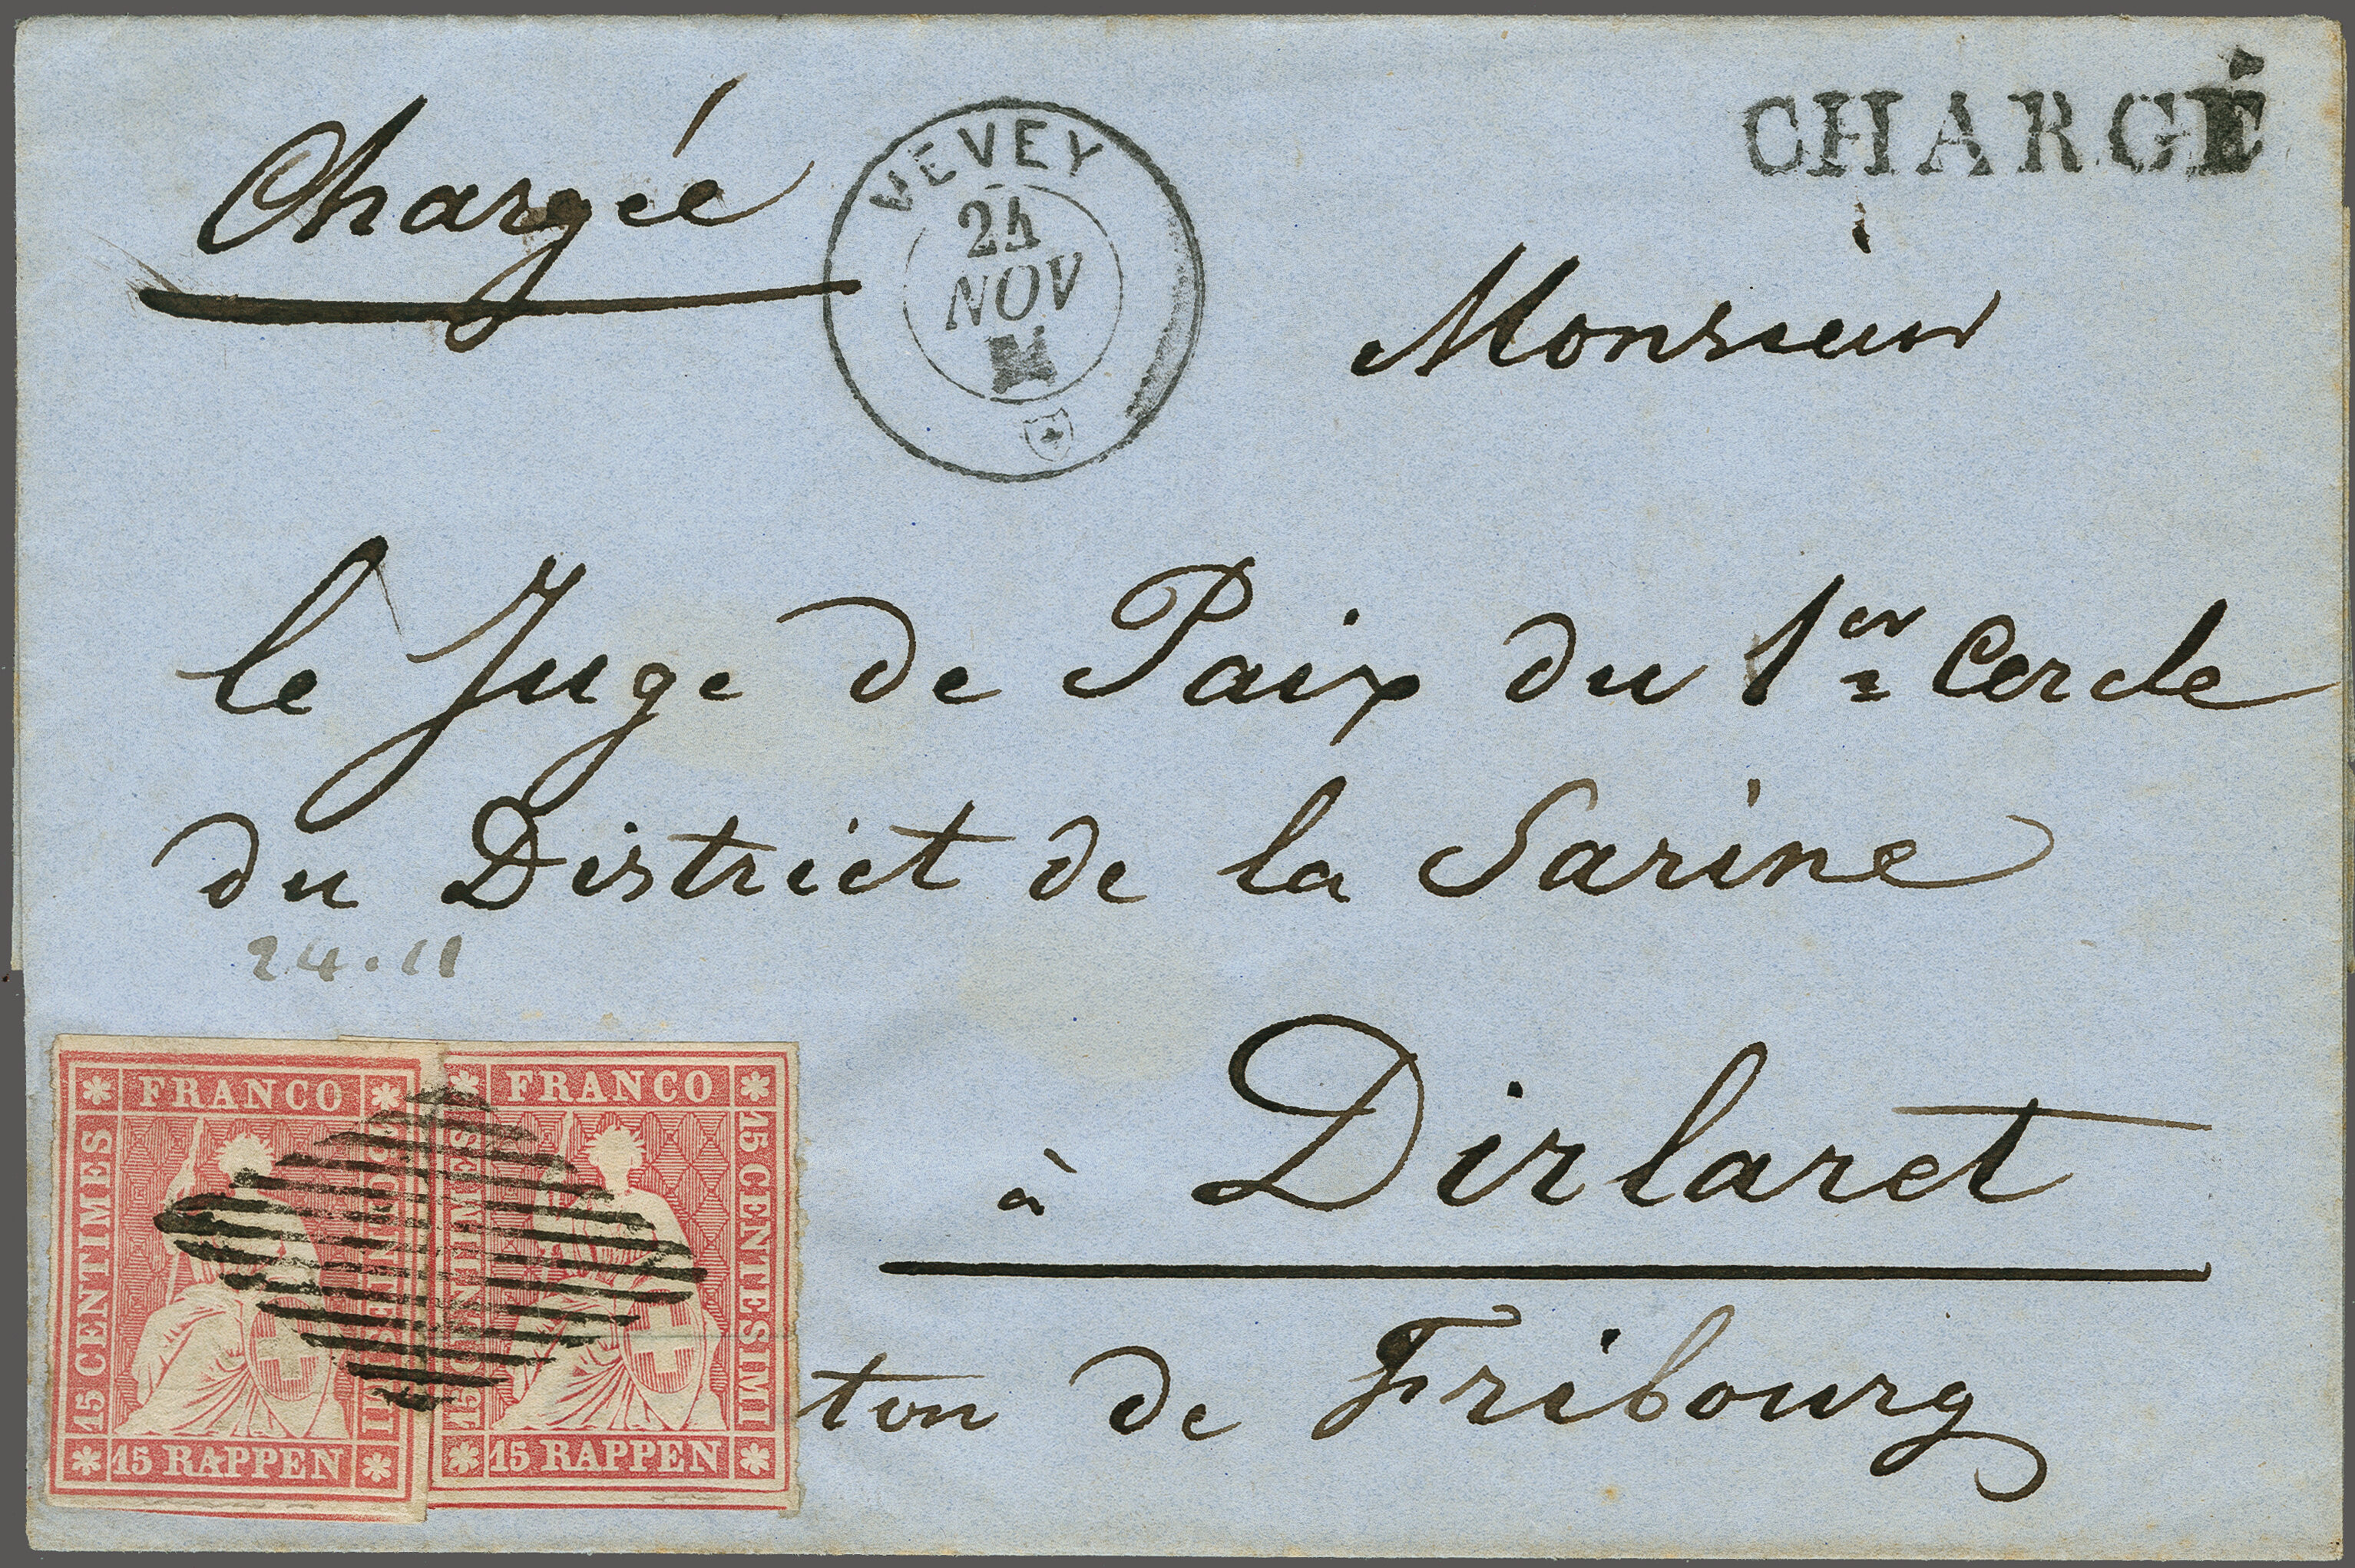 CHARGÉ
Chargée
VEVEY
24
NOV
Monsieur
le Juge de Paix du 1er Cercle
du District de la Sarine
24.11
à Dirlaret
ton de Fribourg
FRANCO
15 CENTIMES
15 RAPPEN
FRANCO
15 CENTIMES
15 CENTESIMI
15 RAPPEN